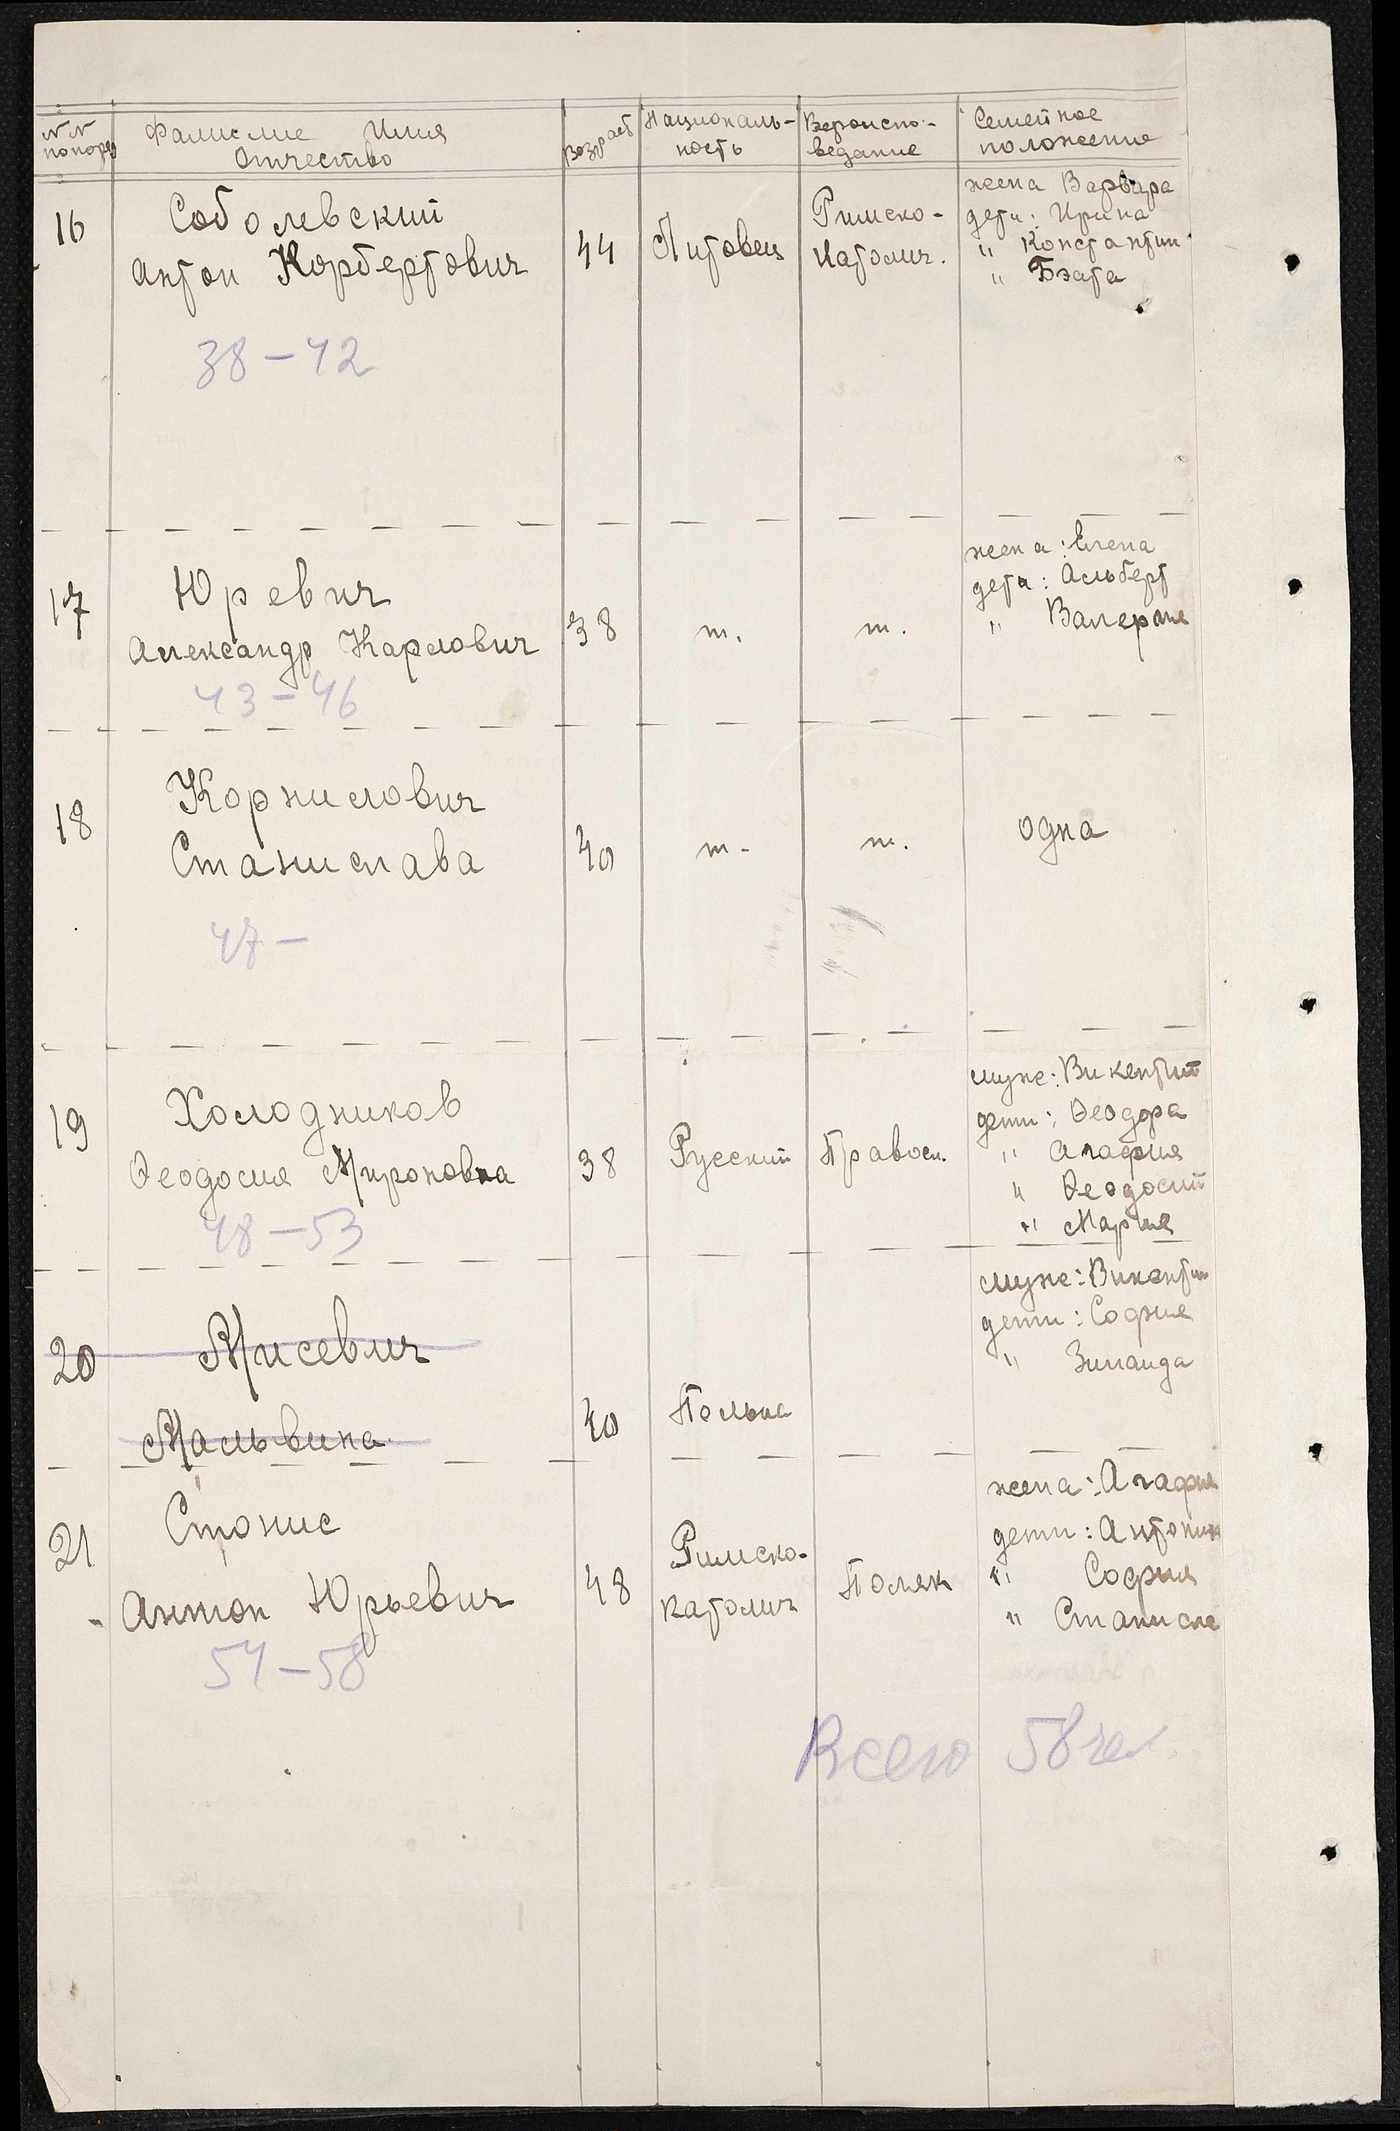 №№ по поряд
Фамилие Имя Отчество
Возраст
Националь-ность
Вероиспо-ведание
Семейное положение
16
Соболевский
Антон Норбертович
44
Литовец
Римско-
католич.
жена Варвара
дети: Ирина
" Константин
" Бэата
38-42
17
Юревич
Александр Карлович
38
т.
т.
жена: Елена
дети: Альберт
" Валерия
43-46
18
Корнилович
Станислава
40
т.
т.
одна
47-
19
Холодников
Феодосия Мироновна
38
Русский
Правосл.
муж: Викентий
дети: Феодора
" Агафия
" Феодосий
" Мария
48-53
20
Мисевич
Мальвина
40
Полька
муж: Викентий
дети: София
" Зинаида
21
Стонис
Антон Юрьевич
48
Римско-
католич
Поляк
жена: Агафия
дети: Антонин
" София
" Станисла
54-58
Всего 58 чел